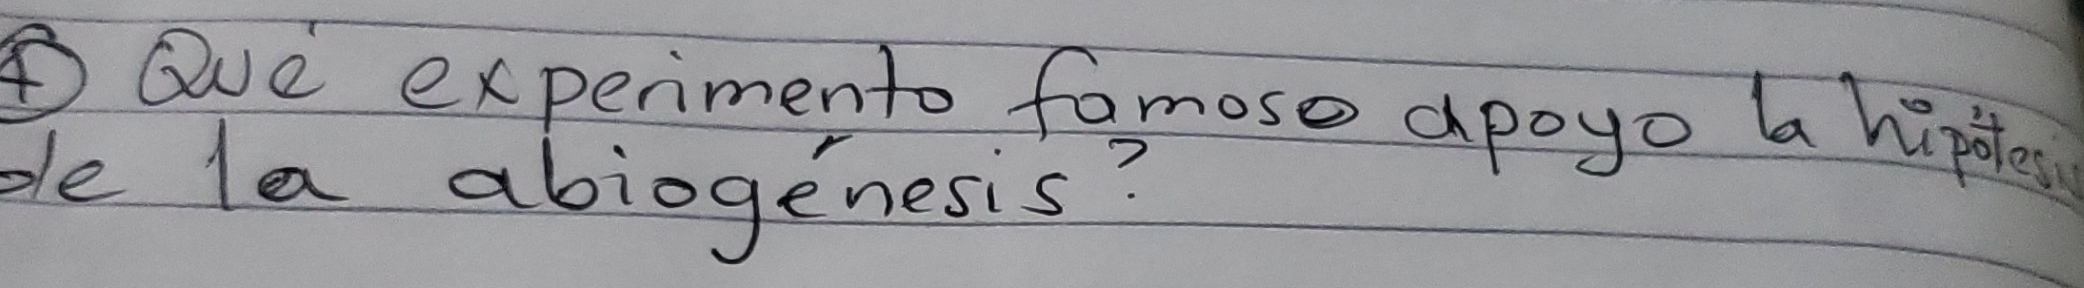 ④ Qué experimento famoso apoyo la hipótesis
de la abiogénesis?